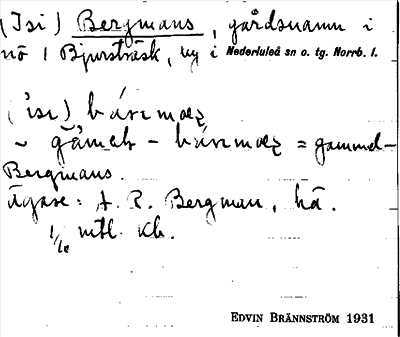 (Isi) Bergmans, gårdsnamn i
nö / Bjursträsk, by i Nederluleå sn o. tg. Norrb. l.
('isi)
= gammel-
Bergmans.
Ägare: A. R. Bergman, hä.
1/16 mtl. Kr.
EDVIN BRÄNNSTRÖM 1931